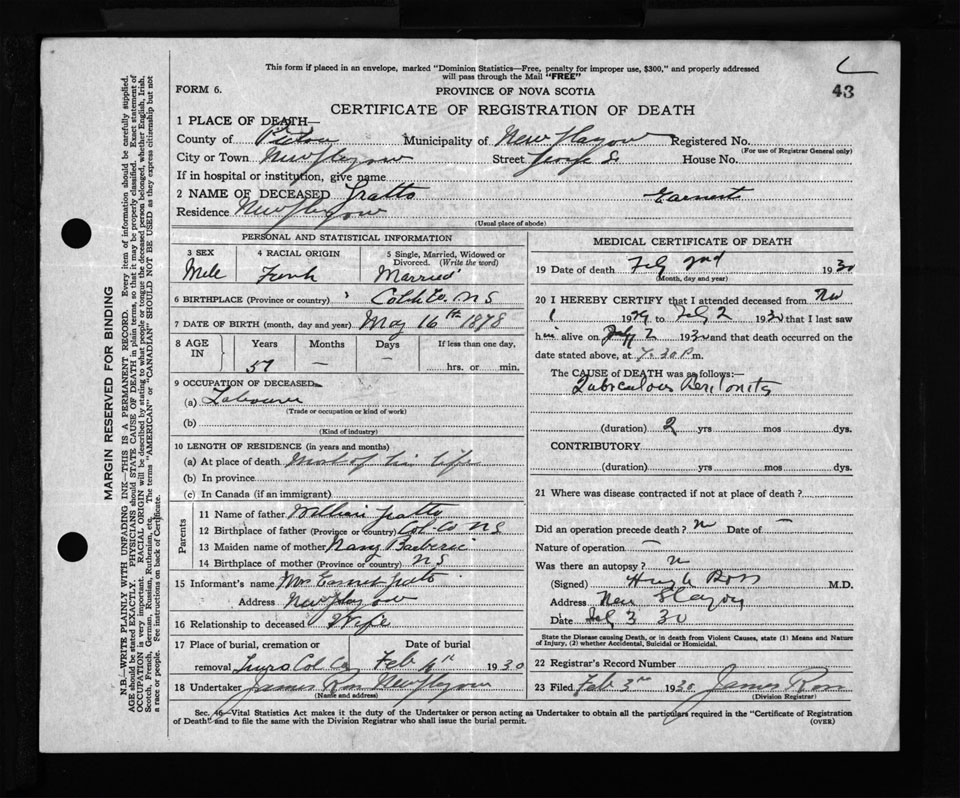 This form if placed in an envelope, marked "Dominion Statistics—Free, penalty for improper use, $300," and properly addressed
will pass through the Mail "FREE"
43
FORM 6.
PROVINCE OF NOVA SCOTIA
CERTIFICATE OF REGISTRATION OF DEATH
1 PLACE OF DEATH—
County of Pictou Municipality of New Glasgow Registered No.
(For use of Registrar General only)
City or Town New Glasgow Street George St House No.
If in hospital or institution, give name
2 NAME OF DECEASED Gratto Earnest
Residence New Glasgow
(Usual place of abode)
PERSONAL AND STATISTICAL INFORMATION
3 SEX 4 RACIAL ORIGIN 5 Single, Married, Widowed or Divorced. (Write the word)
Male French Married
6 BIRTHPLACE (Province or country) Colch Co. N S
7 DATE OF BIRTH (month, day and year) May 16th 1878
8 AGE IN Years Months Days If less than one day,
57 — — hrs. or min.
9 OCCUPATION OF DECEASED
(a) Labourer
(Trade or occupation or kind of work)
(b)
(Kind of industry)
10 LENGTH OF RESIDENCE (in years and months)
(a) At place of death Most of his life
(b) In province
(c) In Canada (if an immigrant)
Parents
11 Name of father William Gratto
12 Birthplace of father (Province or country) Col. Co N S
13 Maiden name of mother Nancy
14 Birthplace of mother (Province or country) N S
15 Informant's name Mrs Earnest Gratto
Address New Glasgow
16 Relationship to deceased Wife
17 Place of burial, cremation or Date of burial
removal Truro Col Co Feb 1930
18 Undertaker James Ross New Glasgow
(Name and address)
MEDICAL CERTIFICATE OF DEATH
19 Date of death Feb 2nd 1930
(Month, day and year)
20 I HEREBY CERTIFY that I attended deceased from Nov
1 1929 to Feb 2 1930 that I last saw
him alive on Feb 2 1930 and that death occurred on the
date stated above, at 7.30 P m.
The CAUSE of DEATH was as follows:—
Tuberculous Peritonitis
(duration) 2 yrs mos dys.
CONTRIBUTORY
(duration) yrs mos dys.
21 Where was disease contracted if not at place of death?
Did an operation precede death? n Date of —
Nature of operation —
Was there an autopsy? n
(Signed) Hugh Ross M.D.
Address New Glasgow
Date Feb 3 30
State the Disease causing Death, or in death from Violent Causes, state (1) Means and Nature
of Injury, (2) whether Accidental, Suicidal or Homicidal.
22 Registrar's Record Number
23 Filed Feb 3rd 1930 James Ross
(Division Registrar)
Sec. 46—Vital Statistics Act makes it the duty of the Undertaker or person acting as Undertaker to obtain all the particulars required in the "Certificate of Registration
of Death" and to file the same with the Division Registrar who shall issue the burial permit. (OVER)
MARGIN RESERVED FOR BINDING
N.B.—WRITE PLAINLY WITH UNFADING INK—THIS IS A PERMANENT RECORD. Every item of information should be carefully supplied.
AGE should be stated EXACTLY. PHYSICIANS should STATE CAUSE OF DEATH in plain terms, so that it may be properly classified. Exact statement of
OCCUPATION is very important. RACIAL ORIGIN will be described by stating to what people or tongue the deceased person belonged, whether English, Irish,
Scotch, French, German, Russian, Ruthenian, etc. The terms "AMERICAN" or "CANADIAN" SHOULD NOT BE USED as they express citizenship but not
a race or people. See instructions on back of Certificate.